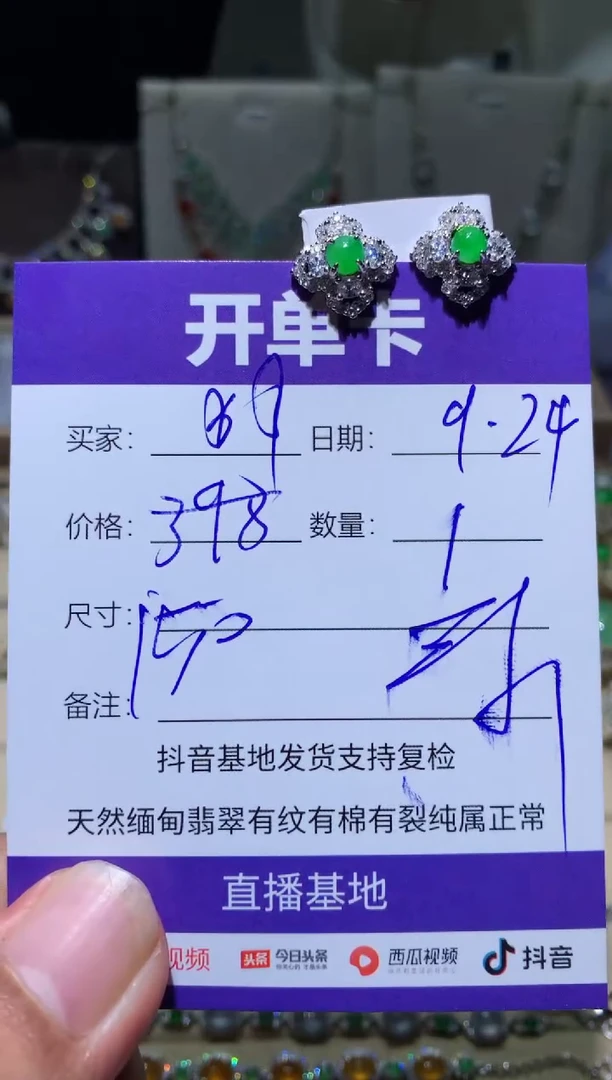 开单卡
买家: 明 日期: 9.24
价格: 398 数量: 1
尺寸:
备注:
抖音基地发货支持复检
天然缅甸翡翠有纹有棉有裂纯属正常
直播基地
视频 头条 今日头条 西瓜视频 抖音